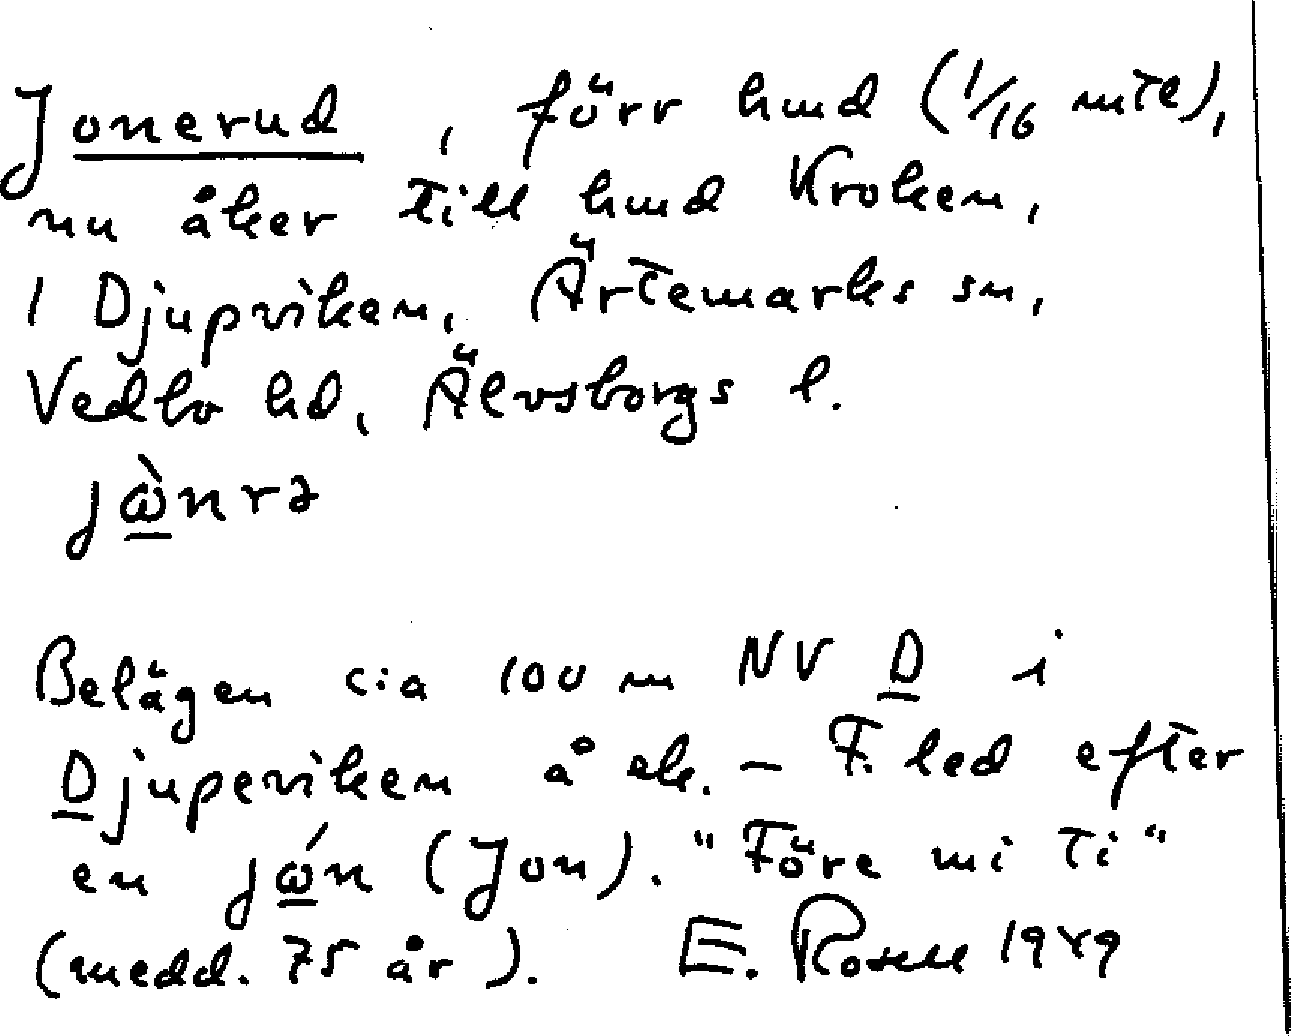 Jonerud, förr hmd (1/16 mtl),
nu åker till hmd Kroken,
1 Djupviken, Ärtemarks sn,
Vedbo hd, Älvsborgs l.
jὼ̠nrə
Belägen c:a 100 m NV D i
Djupeviken å ek. – F. led efter
en jώ̠n (Jon). "Före mi ti"
(medd. 75 år). E. Rosell 1949